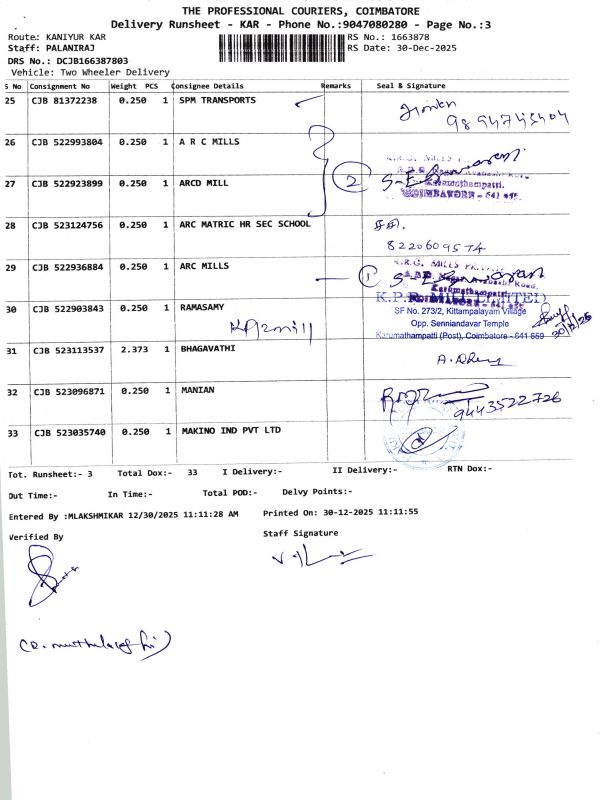 THE PROFESSIONAL COURIERS, COIMBATORE
Delivery Runsheet - KAR - Phone No.:9047080280 - Page No.:3
Route: KANIYUR KAR
RS No.: 1663878
Staff: PALANIRAJ
RS Date: 30-Dec-2025
DRS No.: DCJB166387803
Vehicle: Two Wheeler Delivery
S No Consignment No Weight PCS Consignee Details Remarks Seal & Signature
25 CJB 81372238 0.250 1 SPM TRANSPORTS
26 CJB 522993804 0.250 1 A R C MILLS
27 CJB 522923899 0.250 1 ARCD MILL
2
Karumathampatti.
COIMBATORE - 641
28 CJB 523124756 0.250 1 ARC MATRIC HR SEC SCHOOL
29 CJB 522936884 0.250 1 ARC MILLS
1
Karumathampatti
30 CJB 522903843 0.250 1 RAMASAMY
K.P.R. MILL LIMITED
SF No. 273/2, Kittampalayam Village
Opp. Senniandavar Temple
Karumathampatti (Post), Coimbatore - 641 659
30/12/25
31 CJB 523113537 2.373 1 BHAGAVATHI
32 CJB 523096871 0.250 1 MANIAN
9443522726
33 CJB 523035740 0.250 1 MAKINO IND PVT LTD
Tot. Runsheet:- 3 Total Dox:- 33 I Delivery:- II Delivery:- RTN Dox:-
Out Time:- In Time:- Total POD:- Delvy Points:-
Entered By :MLAKSHMIKAR 12/30/2025 11:11:28 AM Printed On: 30-12-2025 11:11:55
Verified By
Staff Signature